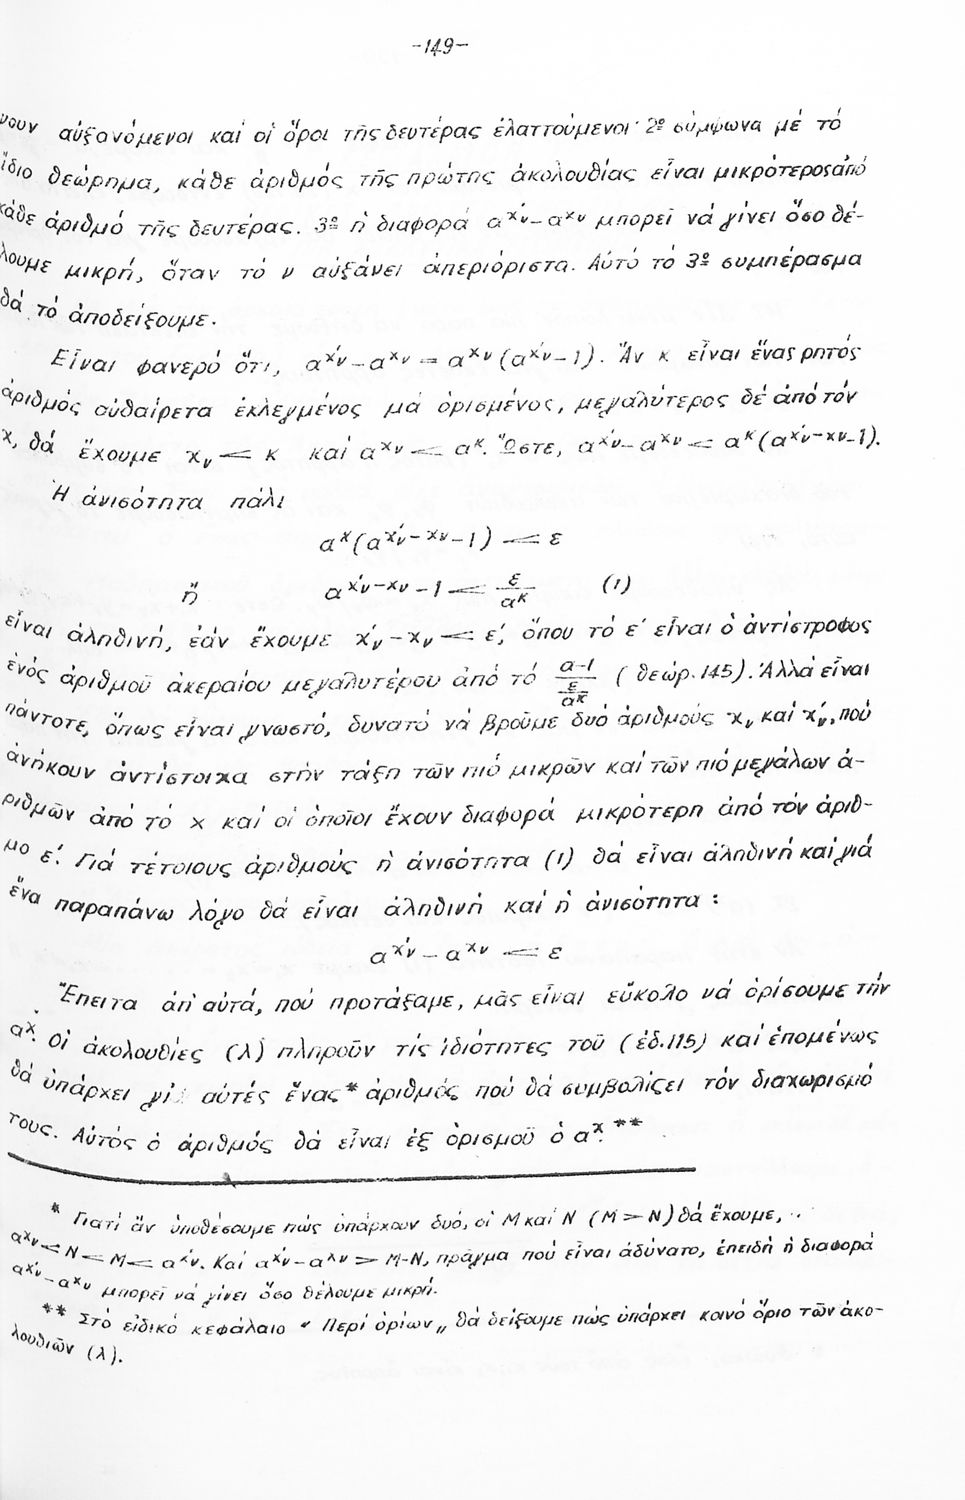 -149-
νουν αὐξανόμενοι καί οἱ ὅροι τῆς δευτέρας ἐλαττούμενοι· 2º σύμφωνα μέ τό
ἴδιο θεώρημα, κάθε ἀριθμός τῆς πρώτης ἀκολουθίας εἶναι μικρότερος ἀπό
κάθε ἀριθμό τῆς δευτέρας. 3º ἡ διαφορά α^χ́ν – α^χν μπορεῖ νά γίνει ὅσο θέ-
λουμε μικρή, ὅταν τό ν αὐξάνει ἀπεριόριστα. Αὐτό τό 3º συμπέρασμα
θά τό ἀποδείξουμε.
Εἶναι φανερό ὅτι, α^χ́ν – α^χν = α^χν (α^χ́ν – 1). Ἄν κ εἶναι ἕνας ρητός
ἀριθμός αὐθαίρετα ἐκλεγμένος μά ὁρισμένος, μεγαλύτερος δέ ἀπό τόν
χ, θά ἔχουμε χν < κ καί α^χν < α^κ. Ὥστε, α^χ́ν – α^χν < α^κ (α^χ́ν–χν – 1).
Ἡ ἀνισότητα πάλι
α^κ (α^χ́ν–χν – 1) < ε
ἤ α^χ́ν–χν – 1 < ε/α^κ (1)
εἶναι ἀληθινή, ἐάν ἔχουμε χ́ν – χν < ε΄, ὅπου τό ε΄ εἶναι ὁ ἀντίστροφος
ἑνός ἀριθμοῦ ἀκεραίου μεγαλυτέρου ἀπό τό (α-1)/(ε/α^κ) (θεώρ. 145). Ἀλλά εἶναι
πάντοτε, ὅπως εἶναι γνωστό, δυνατό νά βροῦμε δυό ἀριθμούς χν καί χ́ν, πού
ἀνήκουν ἀντίστοιχα στήν τάξη τῶν πιό μικρῶν καί τῶν πιό μεγάλων ἀ-
ριθμῶν ἀπό τό χ καί οἱ ὁποῖοι ἔχουν διαφορά μικρότερη ἀπό τόν ἀριθ-
μο ε΄. Γιά τέτοιους ἀριθμούς ἡ ἀνισότητα (1) θά εἶναι ἀληθινή καί γιά
ἕνα παραπάνω λόγο θά εἶναι ἀληθινή καί ἡ ἀνισότητα :
α^χ́ν – α^χν < ε
Ἔπειτα ἀπ' αὐτά, πού προτάξαμε, μᾶς εἶναι εὔκολο νά ὁρίσουμε τήν
α^χ. Οἱ ἀκολουθίες (λ) πληροῦν τίς ἰδιότητες τοῦ (ἐδ. 115) καί ἑπομένως
θά ὑπάρχει γι' αὐτές ἕνας* ἀριθμός πού θά συμβολίζει τόν διαχωρισμό
τους. Αὐτός ὁ ἀριθμός θά εἶναι ἐξ ὁρισμοῦ ὁ α^χ.**
* Γιατί ἄν ὑποθέσουμε πώς ὑπάρχουν δυό, οἱ Μ καί Ν (Μ > Ν) θά ἔχουμε,
α^χν < Ν < Μ < α^χ́ν. Καί α^χ́ν – α^χν > Μ-Ν, πράγμα πού εἶναι ἀδύνατο, ἐπειδή ἡ διαφορά
α^χ́ν – α^χν μπορεῖ νά γίνει ὅσο θέλουμε μικρή.
** Στό εἰδικό κεφάλαιο « Περί ὁρίων „ θά δείξουμε πώς ὑπάρχει κοινό ὅριο τῶν ἀκο-
λουθιῶν (λ).